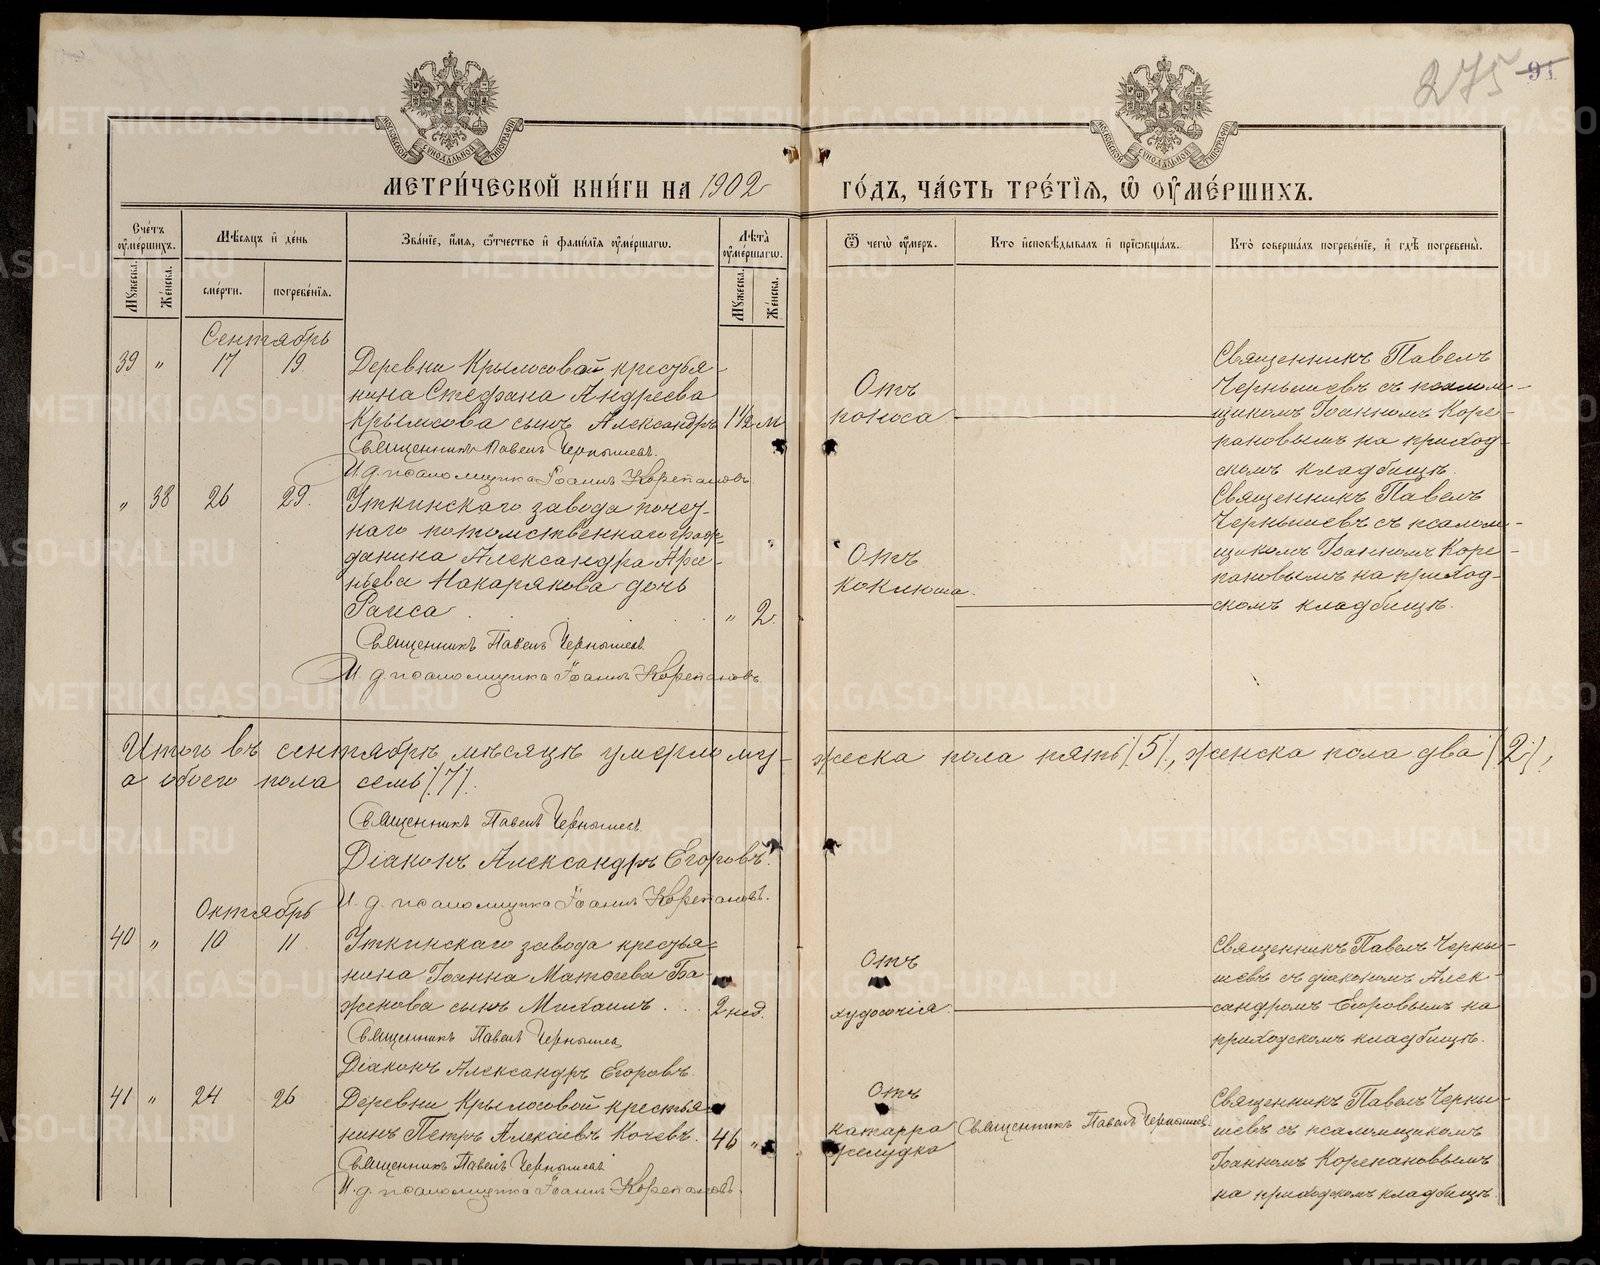 275
91.
МОСКОВСКОЙ СѴНОДАЛЬНОЙ ТИПОГРАФІИ
МОСКОВСКОЙ СѴНОДАЛЬНОЙ ТИПОГРАФІИ
МЕТРИ́ЧЕСКОЙ КНИ́ГИ НА 1902 ГО́ДЪ, ЧА́СТЬ ТРЕ́ТІѦ, Ѡ ОУМЕ́РШИХЪ.
Сче́тъ оумершихъ.
Мужеска.
Женска.
Мѣсяцъ и де́нь
смерти.
погребенїя.
Зва́нїе, и́мя, ѻтчество и фами́лїя оуме́ршагѡ.
Лѣта̀ оуме́ршагѡ.
Мужеска.
Женска.
Ѿ чегѡ̀ оу́меръ.
Кто̀ и҆сповѣ́дывалъ и҆ прїѡбща́лъ.
Кто̀ соверша́лъ погребе́нїе, и҆ гдѣ̀ погребены̀.
Сентябрь
39 „ 17 19
Деревни Крылосовой крестья-
нина Стефана Андреева
Крылосова сынъ Александръ 1½ м
Священникъ Павелъ Чернышевъ.
И. д. псаломщика Іоаннъ Корепановъ
Отъ
поноса
Священникъ Павелъ
Чернышевъ съ псалом-
щикомъ Іоанномъ Коре-
пановымъ на приход-
скомъ кладбищѣ.
„ 38 26 29.
Уткинскаго завода почет-
наго потомственнаго граж-
данина Александра Арсе-
ньева Макарякова дочь
Раиса „ 2.
Священникъ Павелъ Чернышевъ
И. д. псаломщика Іоаннъ Корепановъ
Отъ
коклюша.
Священникъ Павелъ
Чернышевъ съ псалом-
щикомъ Іоанномъ Коре-
пановымъ на приход-
скомъ кладбищѣ.
Итого въ сентябрѣ мѣсяцѣ умерло му-жеска пола пять /5/, женска пола два /2/,
а обоего пола семь /7/.
Священникъ Павелъ Чернышевъ
Діаконъ Александръ Егоровъ.
И. д. псаломщика Іоаннъ Корепановъ.
Октябрь
40 „ 10 11
Уткинскаго завода крестья-
нина Іоанна Матѳеева Ба-
женова сынъ Михаилъ . . . 2 нед.
Священникъ Павелъ Чернышев
Діаконъ Александръ Егоровъ
Отъ
худосочія.
Священникъ Павелъ Черны-
шевъ съ діакономъ Алек-
сандромъ Егоровымъ на
приходскомъ кладбищѣ.
41 „ 24 26
Деревни Крылосовой крестья-
нинъ Петръ Алексіевъ Кочевъ. 46 „
Священникъ Павелъ Чернышевъ
И. д. псаломщика Іоаннъ Корепановъ.
Отъ
катарра
желудка
Священникъ Павелъ Чернышевъ.
Священникъ Павелъ Черны-
шевъ съ псаломщикомъ
Іоанномъ Корепановымъ
на приходскомъ кладбищѣ.
METRIKI.GASO-URAL.RU